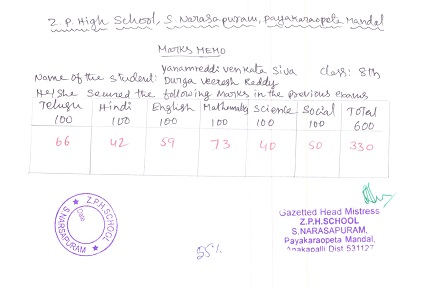 Z. P. High School, S. Narasapuram, Payakaraopeta Mandal
Marks Memo
Name of the Student: Vanamreddi Venkata Siva Class: 8th
Durga Veeresh Reddy
He/She Secured the following Marks in the previous exams
Telugu Hindi English Mathematics Science Social Total
100 100 100 100 100 100 600
66 42 59 73 40 50 330
Z.P.H.SCHOOL
S.NARSAPURAM
Date
Gazetted Head Mistress
Z.P.H.SCHOOL
S.NARASAPURAM,
Payakaraopeta Mandal,
Anakapalli Dist 531127
55%